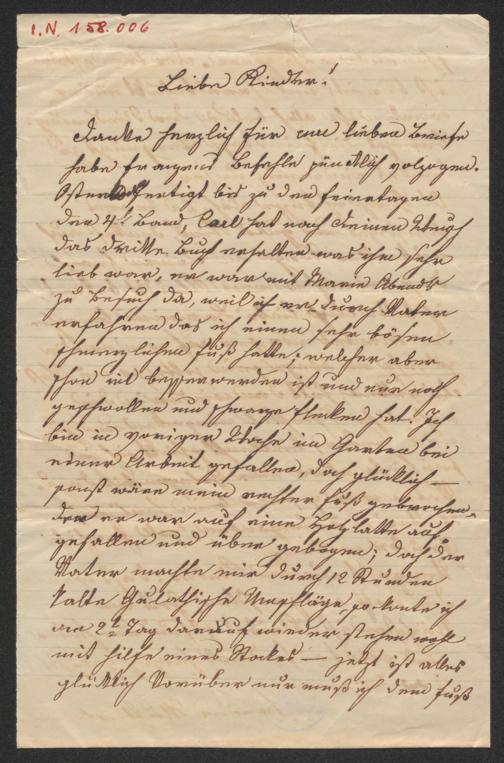 I.N. 158.006
Liebe Kinder!
Danke herzlich für eure lieben Briefe
habe Befehle pünktlich volzogen.
fertigt bis zu den Feiertagen
den 4t Band, Carl hat nach Deinen
das dritte Buch erhalten was ihm sehr
lieb war, er war mit Marie Abends
zu Besuch da, weil er durch Vater
erfahren das ich einen sehr bösen
schmerzlichen Fuß hatte, welcher aber
schon viel besser werden ist und nur noch
geschwollen und schwarze Flecken hat. Ich
bin in voriger Woche im Garten bei
einer Arbeit gefallen, doch glücklich —
sonst wäre mein rechter Fuß gebrochen
den er war auf eine Holzlatte auf
gefallen und über gebogen; doch der
Vater machte mir durch 12 Stunden
kalte Umschläge, so konte ich
am 2t Tag darauf wieder stehen wohl
mit hilfe eines Stockes — jetzt ist alles
glücklich Vorüber nur muß ich dem Fuß